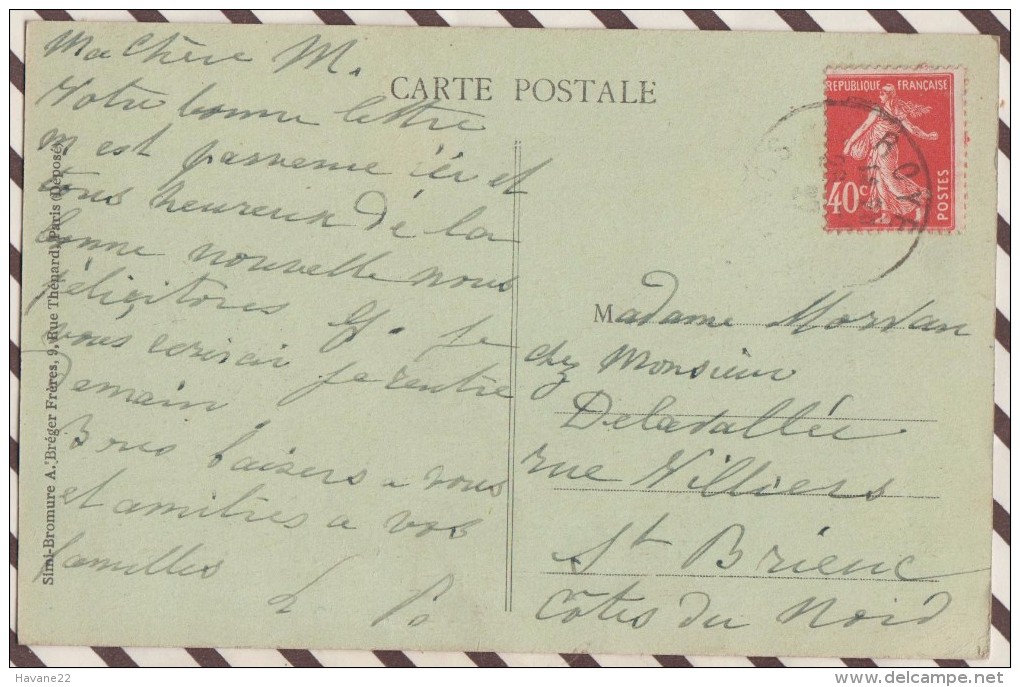 CARTE POSTALE
Ma Chère M.
Votre bonne lettre
m est parvenue ici et
tous heureux de la
bonne nouvelle nous
félicitons
vous écrirai je rentre
Demain
Bons baisers a vous
et amitiés a vos
familles
Simi-Bromure A. Bréger Frères, 9, Rue Thénard, Paris (Déposé)
REPUBLIQUE FRANÇAISE
40c
POSTES
ROYE
Madame Morvan
chez Monsieur
Delavallée
rue Villiers
St Brieuc
Côtes du Nord
Havane22